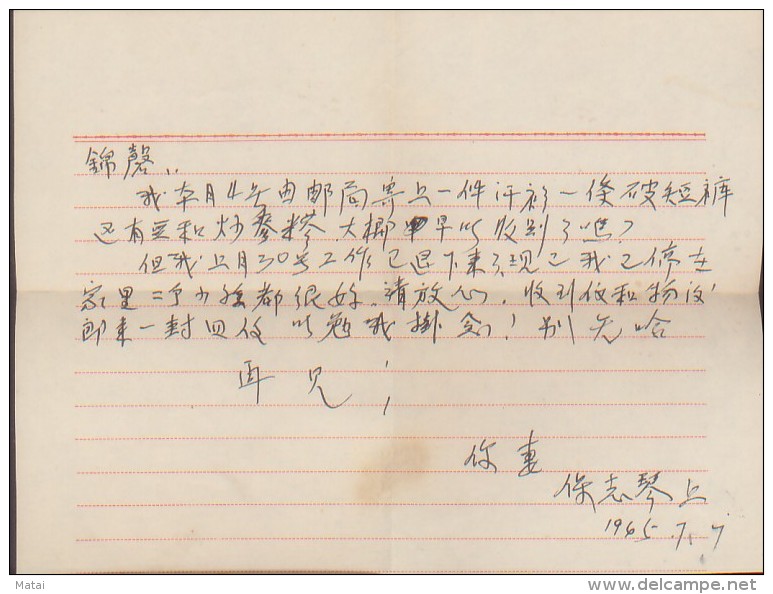 錦磬:
我本月4号由邮局寄上一件汗衫一條破短裤
还有豆和炒麥粉 大概早以收到了嗎?
但我上月30号工作已退下来了现已我已停在
家里 二个小孩都很好.请放心.收到信和物后
即来一封回信 以免我掛念!别无哈
再见;
你妻
保志琴上
1965.7.7.
Matai
www.delcampe.net